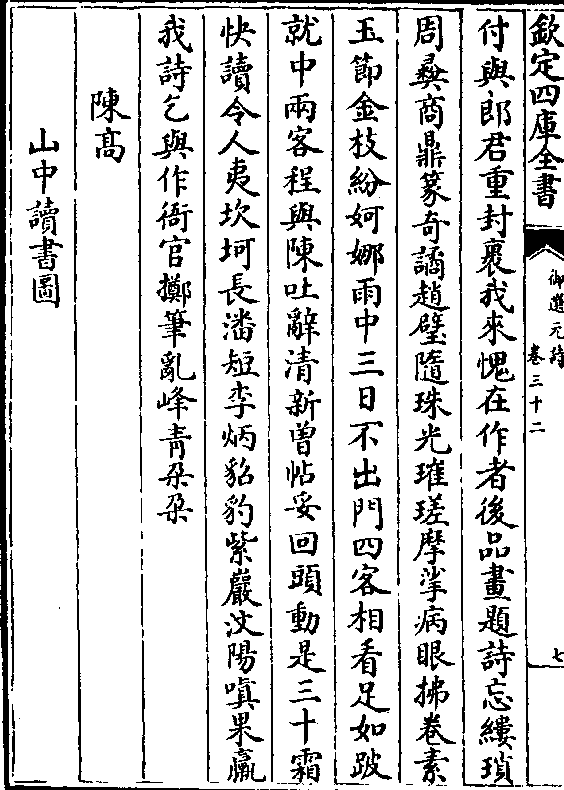 欽定四庫全書
御選元詩
卷三十二
七
付與郎君重封裹我來愧在作者後品畫題詩忘縷瑣
周彞商鼎篆奇譎趙璧隨珠光璀瑳摩挲病眼拂卷素
玉節金枝紛婀娜雨中三日不出門四客相看足如跛
就中兩客程與陳吐辭清新曽帖妥回頭動是三十霜
快讀令人夷坎坷長潘短李炳貂豹紫巖汶陽嗔果蠃
我詩乞與作衙官擲筆亂峰青朶朶
陳髙
山中讀書圖